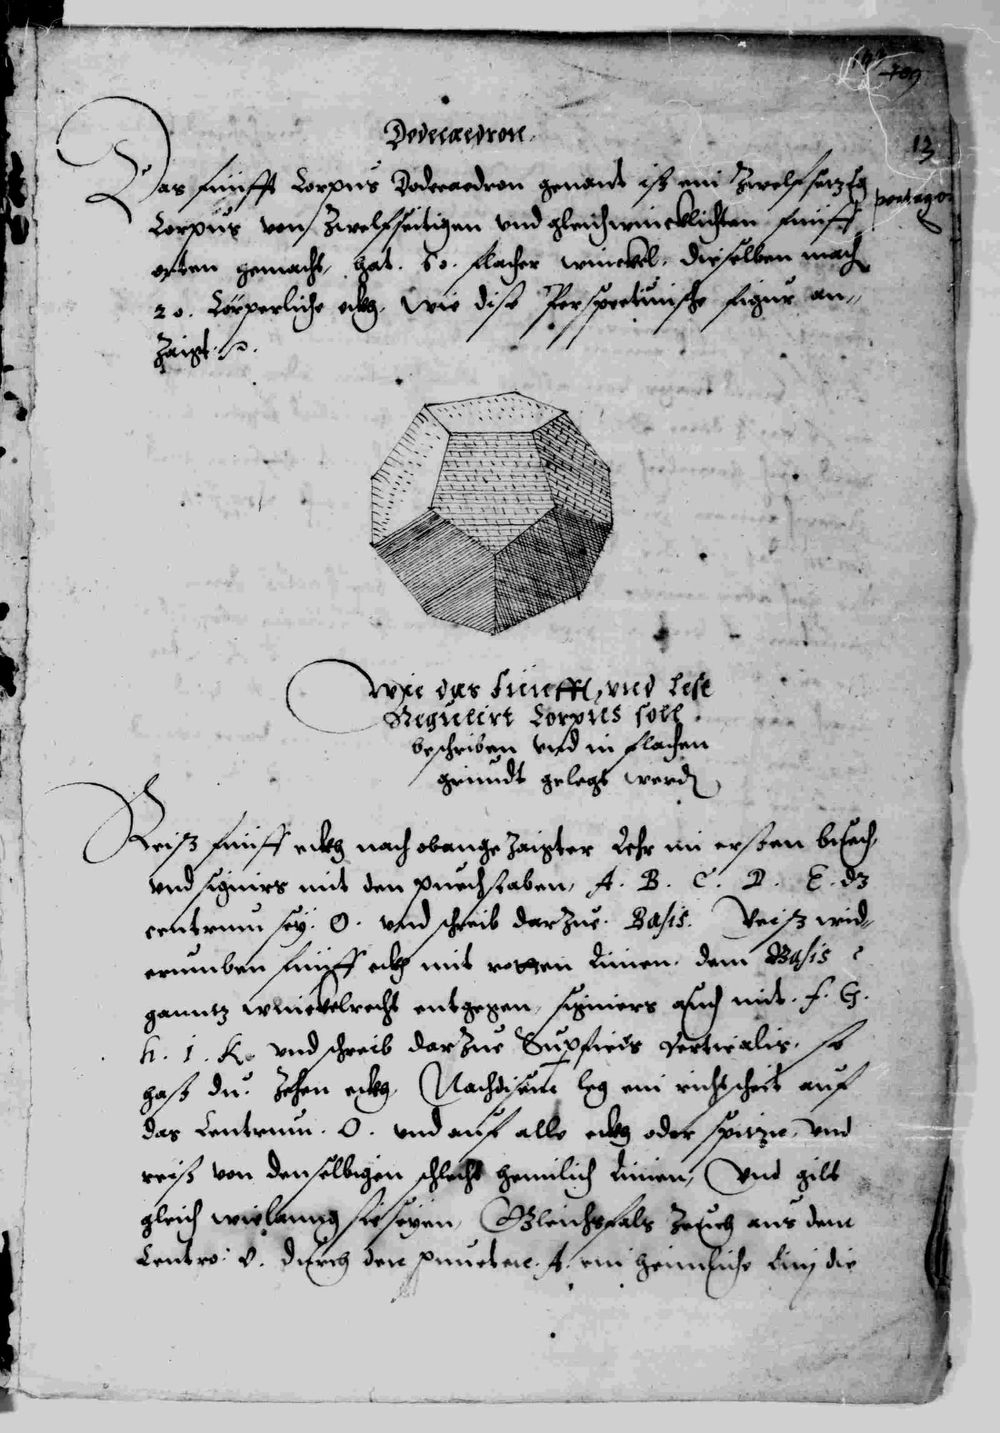 109
13
Dodecaedron.
Das fünfft Corpus Dodecaedron genant ist ein Zwelffseitzig
Corpus von Zwelffseitigen vnd gleichwincklichten fünff
orten gemacht, hat. 60. flacher winckel, dieselben mach
20. Cörperliche eckh, Wie dise Perspectiuische figur an,,
Zaigt.
Wie das fünfft, vnd lest
Regulirt Corpus soll
beschriben vnd in flachen
grundt gelegt werd
Reiß fünff eckh nach obange Zaigter Lehr im ersten buech,
vnd signirs mit den puechstaben, A. B. C. D. E. dz
centrum sey. O. vnd schreib darzue. Basis. Reiß wid,,
erumben fünff eckh mit rotten Linien, dem Basis
ganntz winckelrecht entgegen, signiers auch mit. f. G.
h. i. K. vnd schreib darzue Superficies verticalis, so
hast du. Zehen eckh, Nachdisem leg ein richtscheit auf
das Centrum. O. vnd auf alle eckh oder spitze, vnd
reiß von denselbigen schlecht heimlich Linien, Vnd gilt
gleich wielanng sie seyen, Gleichsfals Zeuch aus dem
Centro: O. durch den puncten. A. ein heimliche Linj die